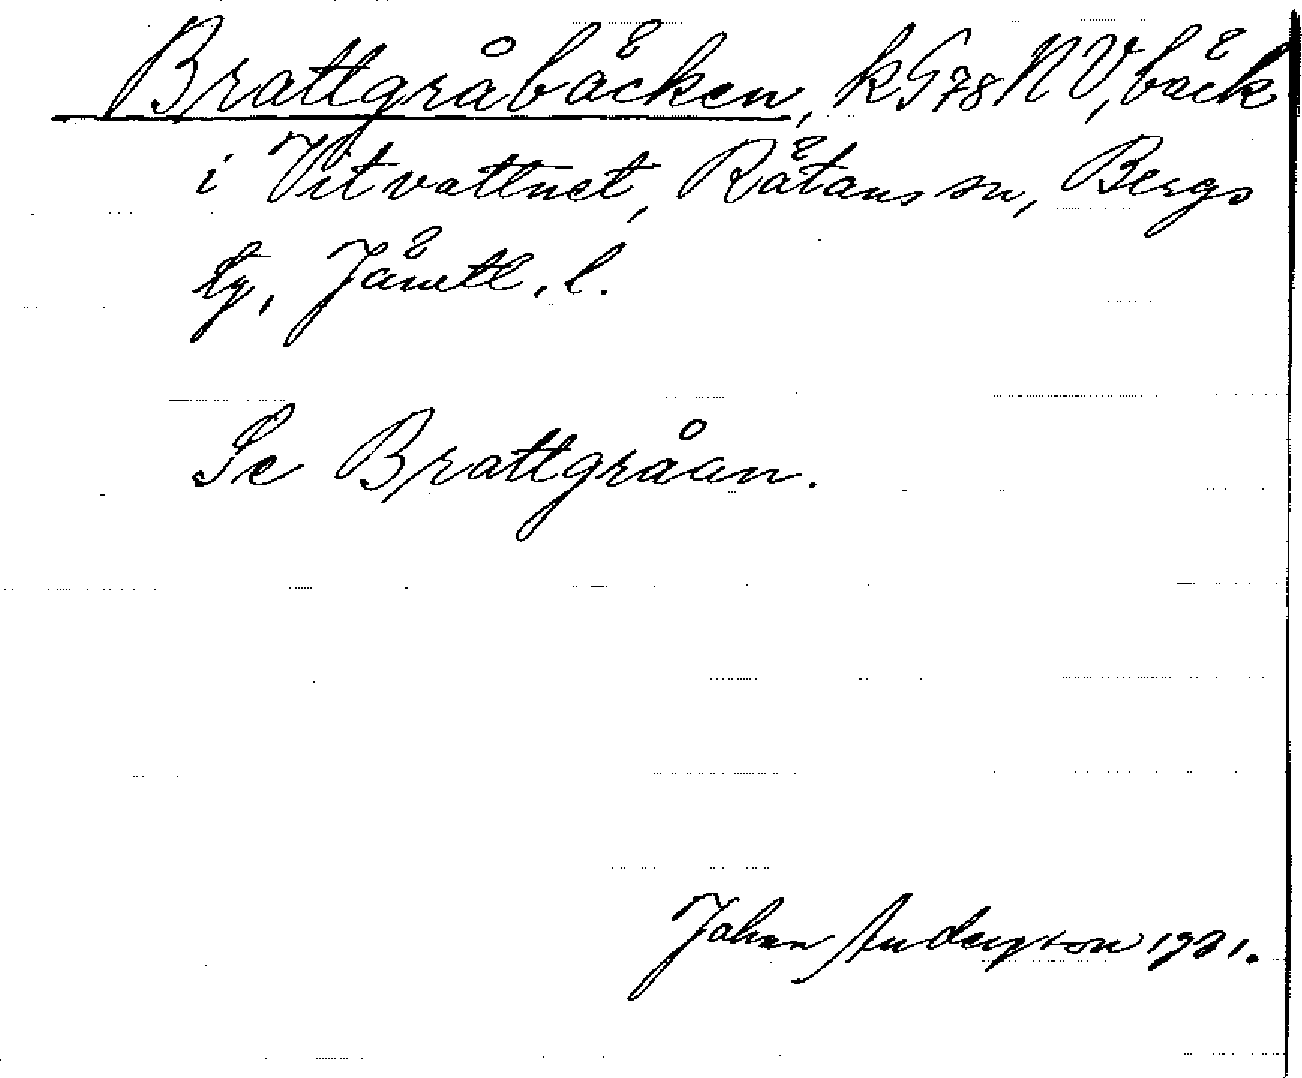 Brattgråbäcken, kG78NV, bäck
i Vitvattnet, Rätans sn, Bergs
tg, Jämtl. l.
Se Brattgråan.
Johan Anderson 1921.